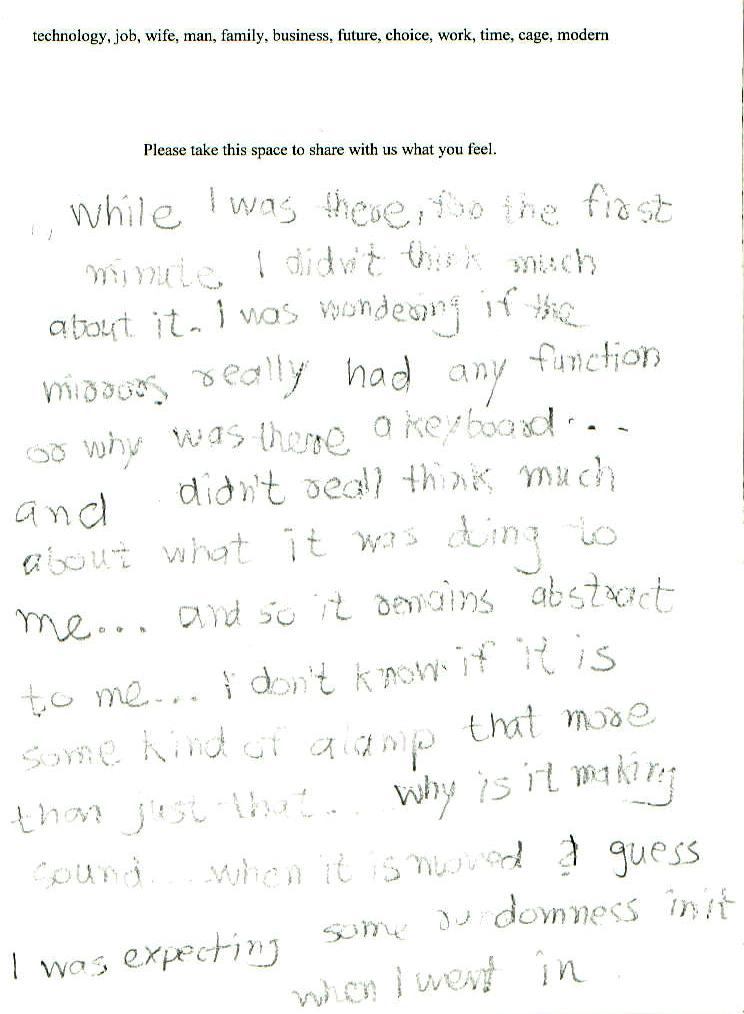 technology, job, wife, man, family, business, future, choice, work, time, cage, modern
Please take this space to share with us what you feel.
While I was there, for the first
minute I didn't think much
about it. I was wondering if the
mirrors really had any function
or why was there a keyboard...
and didn't reall think much
about what it was ding to
me... and so it remains abstract
to me... I don't know if it is
some kind of a lamp that more
than just that... why is it making
sound... when it is moved I guess
I was expecting some randomness in it
when I went in